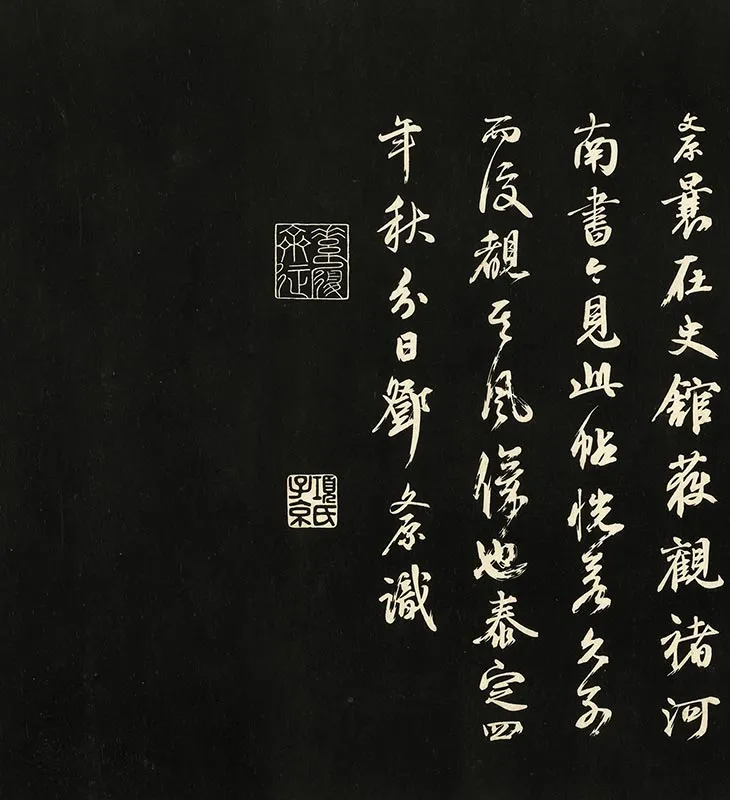 文原曩在史館獲觀褚河
南書今見此帖恍若久別
而復覩其風儀也泰定四
年秋分日鄧文原識
項氏子京